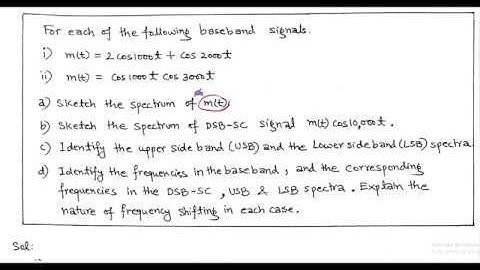 For each of the following baseband signals.
i) m(t) = 2 cos1000t + cos 2000t
ii) m(t) = cos1000t cos 3000t
a) Sketch the spectrum of m(t).
b) Sketch the spectrum of DSB-SC signal m(t) cos10,000t.
c) Identify the upper side band (USB) and the Lower side band (LSB) spectra
d) Identify the frequencies in the baseband, and the corresponding
frequencies in the DSB-SC, USB & LSB spectra. Explain the
nature of frequency shifting in each case.
Sol: